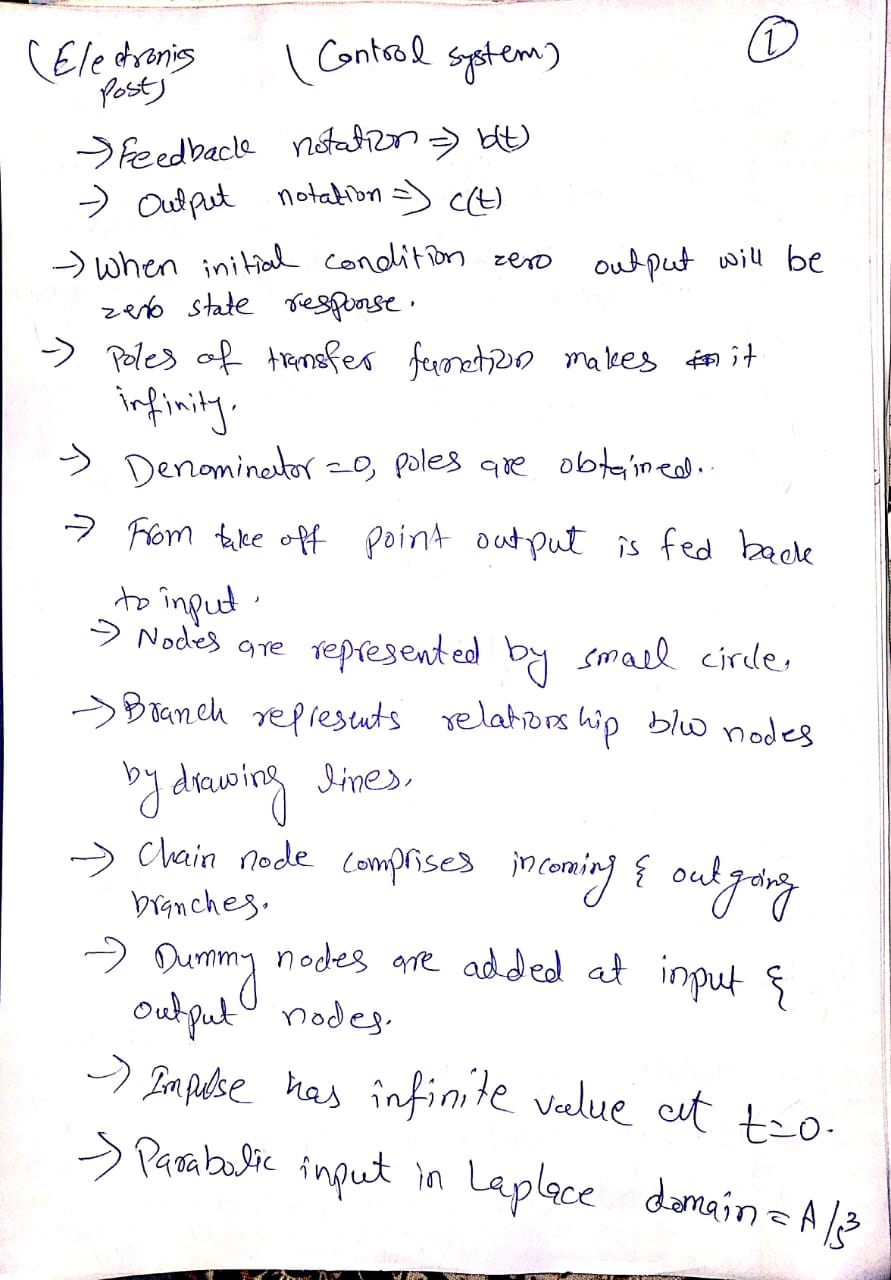 (Electronics (Control system) ①
Post)
→ Feedback notation ⇒ b(t)
→ Output notation ⇒ c(t)
→ When initial condition zero output will be
zero state response.
→ Poles of transfer function makes it
infinity.
→ Denominator =0, poles are obtained..
→ From take off point output is fed back
to input.
→ Nodes are represented by small circle.
→ Branch represents relationship b/w nodes
by drawing lines.
→ Chain node comprises incoming & outgoing
branches.
→ Dummy nodes are added at input &
output nodes.
→ Impulse has infinite value at t=0.
→ Parabolic input in Laplace domain = A/s³